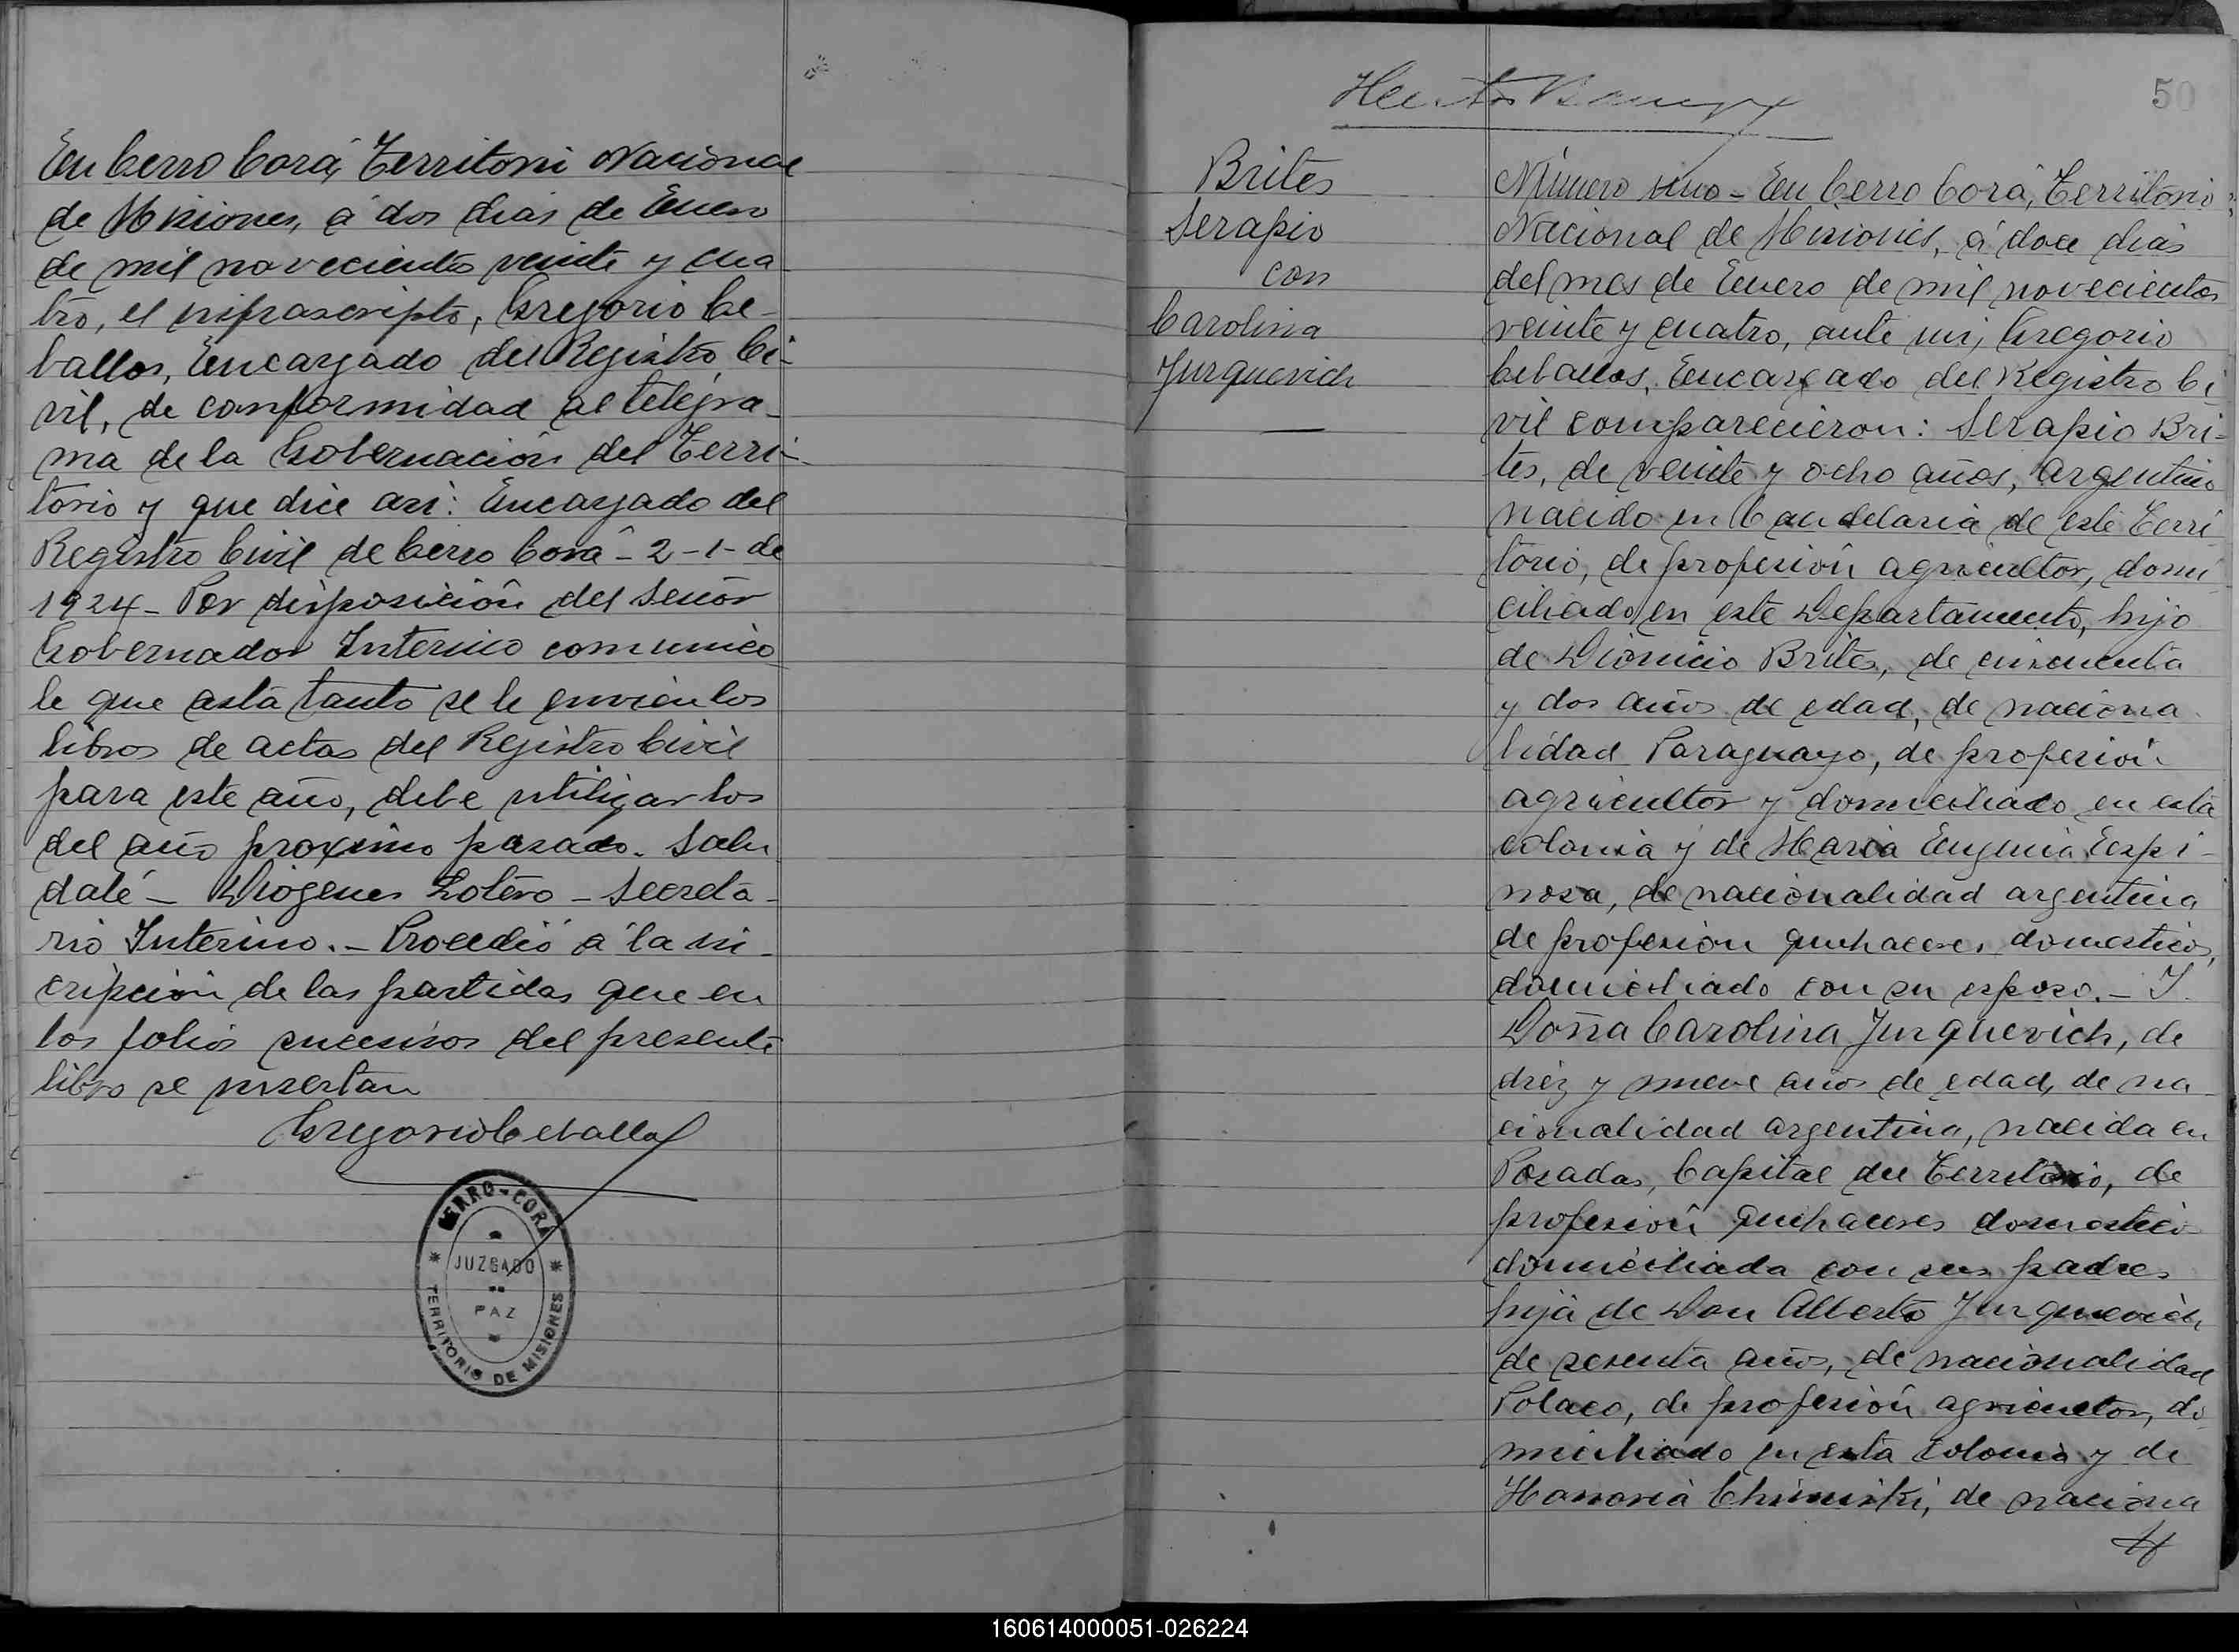 En Cerro Corá, Territorio Nacional
de Misiones, á dos dias de Enero
de mil novecientos veinte y cua
tro, el infrascripto, Gregorio Ce-
ballos, Encargado del Registro Ci-
vil, de conformidad al telegra-
ma de la Gobernación del Terri-
torio y que dice asi: Encargado del
Registro Civil de Cerro Corá - 2-1- de
1924 - Por disposición del Señor
Gobernador Interino comunico
le que asta tanto se le envien los
libros de actas del Registro Civil
para este año, debe utilizar los
del año proximo pasado. Salu
dale - Diógenes Lotero - Secreta-
rio Interino. - Procedió á la ins-
cripción de las partidas que en
los folios sucesivos del presente
libro se insertan
Gregorio Ceballos
CERRO-CORA
JUZGADO
DE
PAZ
TERRITORIO DE MISIONES
50
Brites
Serapio
con
Carolina
Jurquevich
Número uno - En Cerro Corá, Territorio
Nacional de Misiones, á doce dias
del mes de Enero de mil novecientos
veinte y cuatro, ante mi, Gregorio
Ceballos, Encargado del Registro Ci
vil comparecieron: Serapio Bri-
tes, de veinte y ocho años, argentino
nacido en Candelaria de este Terri
torio, de profesión agricultor, domi
ciliado en este Departamento, hijo
de Dionicio Brites, de cincuenta
y dos años de edad, de naciona
lidad Paraguayo, de profesión
agricultor y domiciliado en esta
colonia y de Maria Eugenia Espi-
nosa, de nacionalidad argentina
de profesion quehaceres domesticos,
domiciliado con su esposo. - Y.
Doña Carolina Jurquevich, de
diez y nueve años de edad, de na
cionalidad argentina, nacida en
Posadas, Capital del Territorio, de
profesión quehaceres domestico
domiciliada con sus padres
hija de Don Alberto Jurquevich,
de sesenta años, de nacionalidad
Polaco, de profesión agricultor, do
miciliado en esta colonia y de
de naciona
160614000051-026224